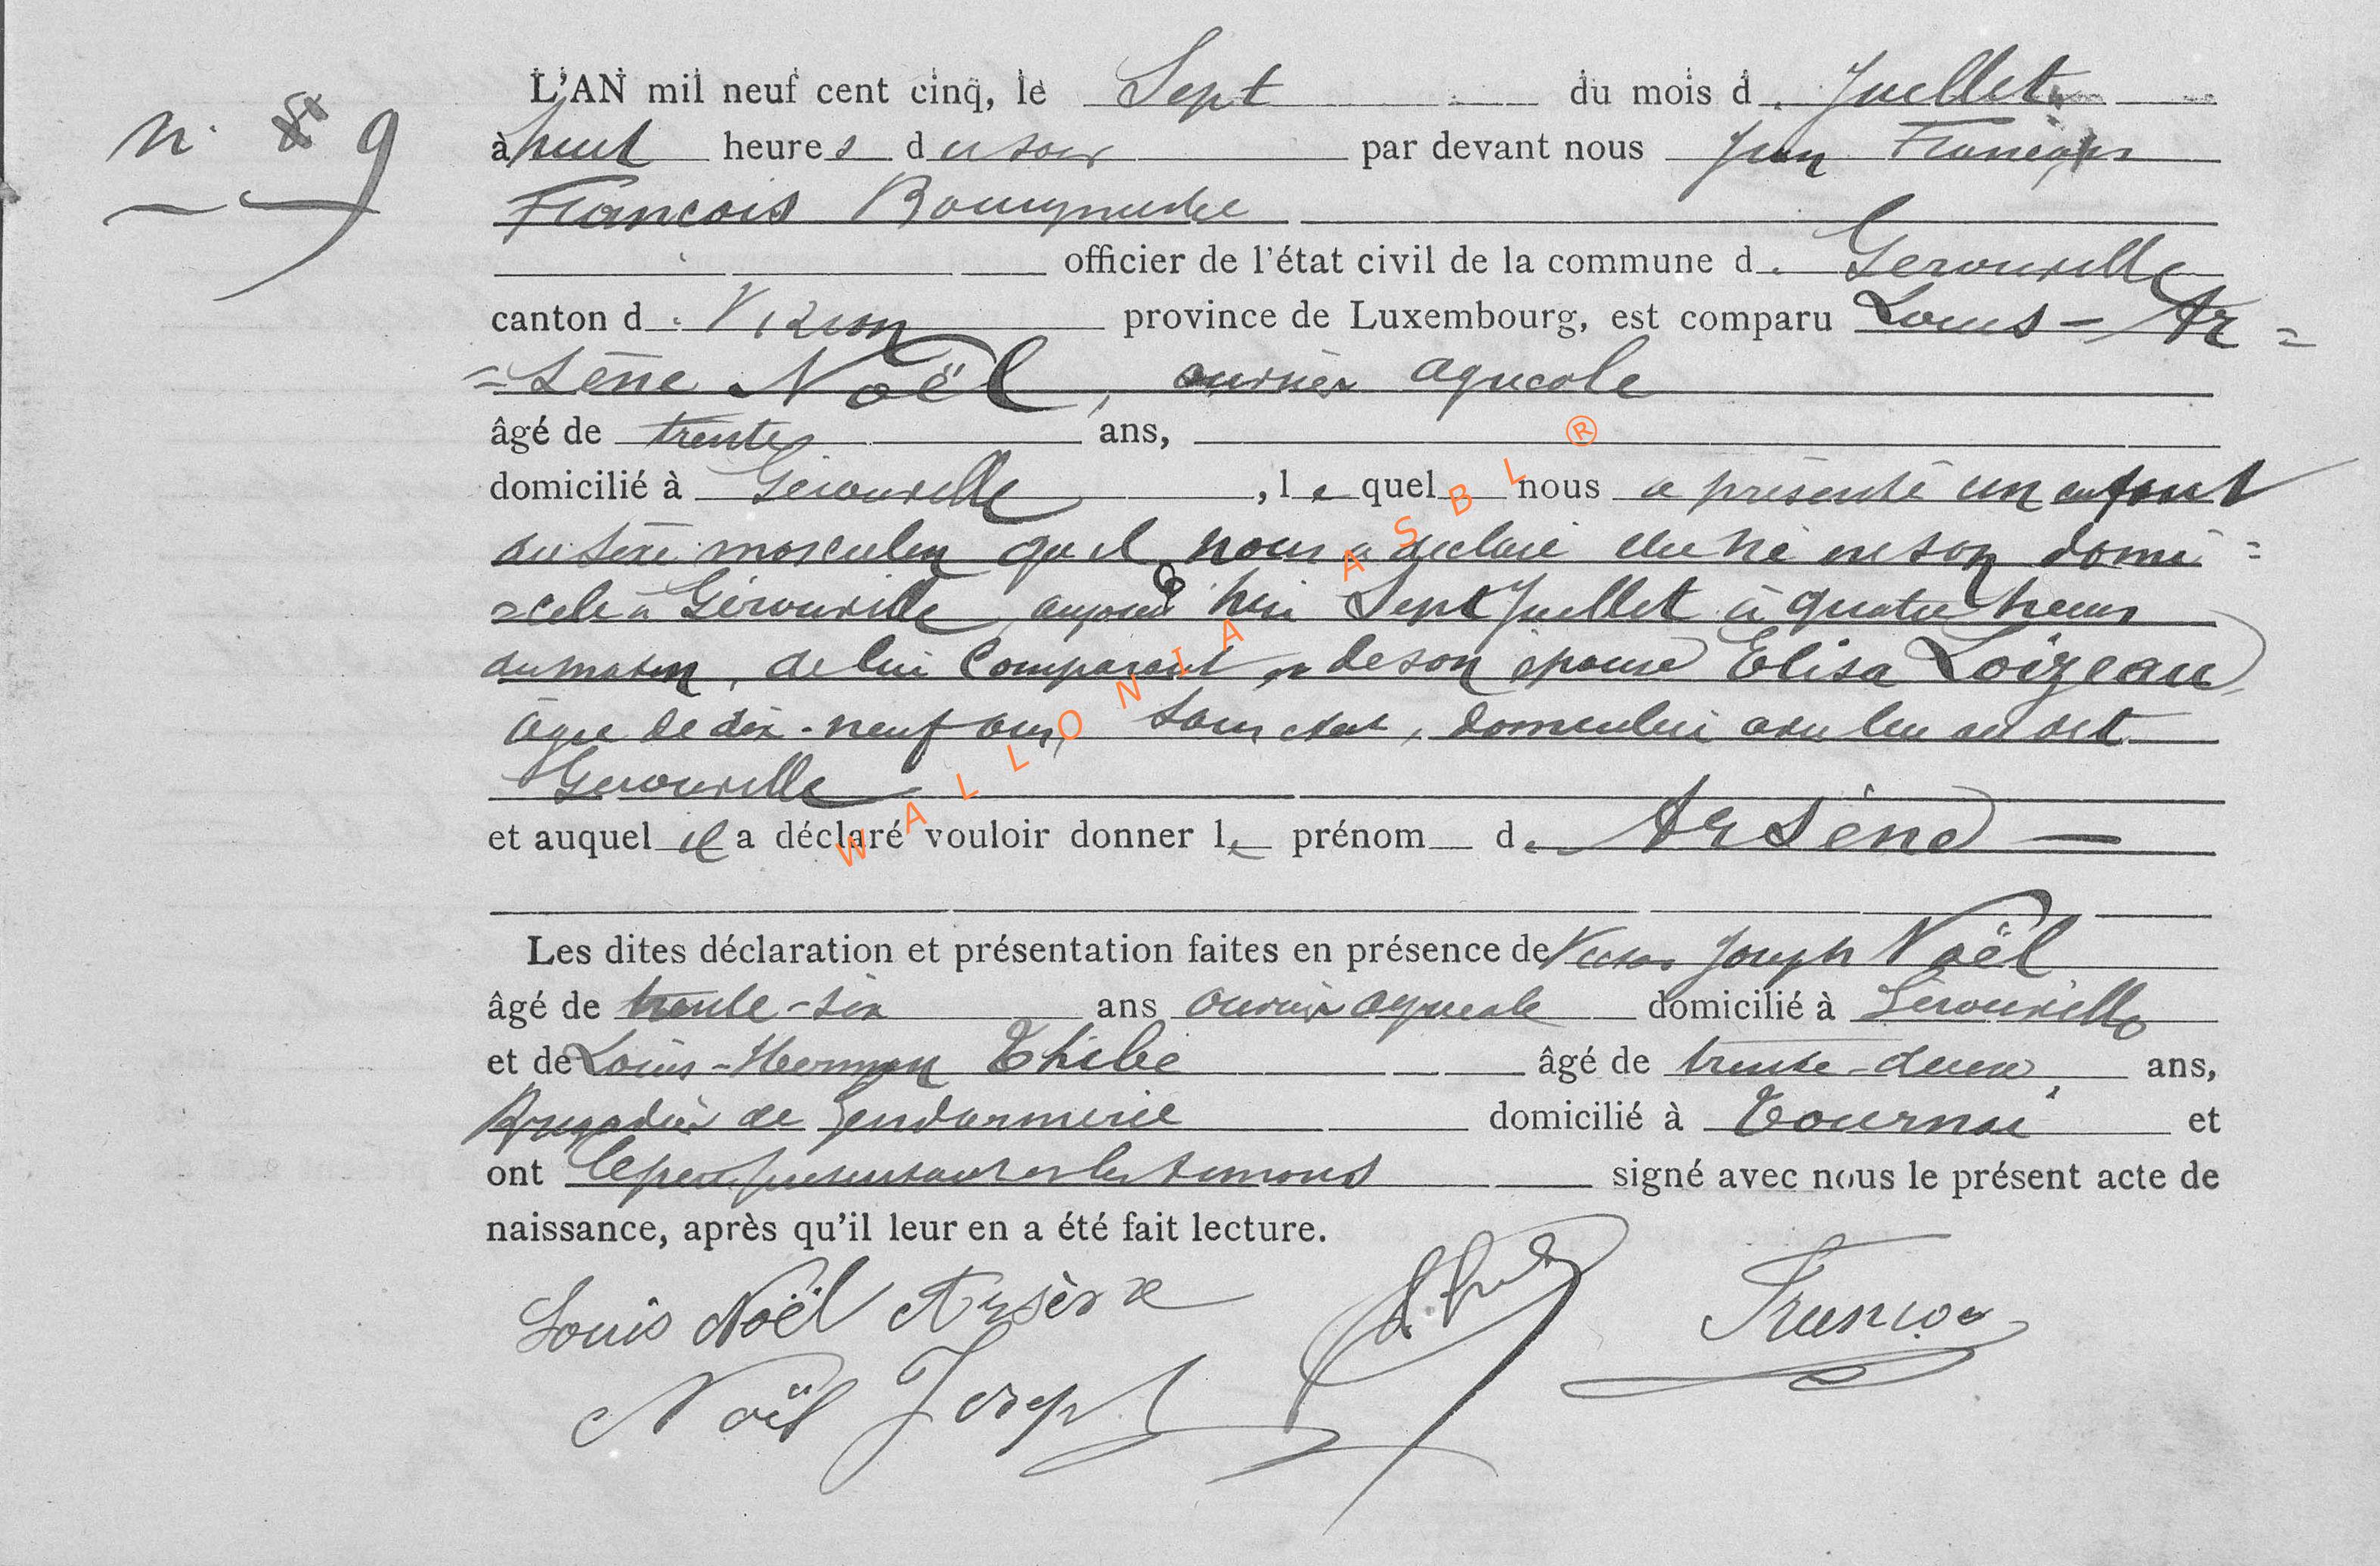 L'AN mil neuf cent cinq, le Sept du mois de Juillet
N. 9
à huit heures du soir par devant nous Jean François
François Bourgmestre
officier de l'état civil de la commune de Gérouville
canton de Virton province de Luxembourg, est comparu Louis-Ar=
=sène Noël, ouvrier agricole
âgé de trente ans,
domicilié à Gérouville, lequel nous a présenté un enfant
du sexe masculin qu'il nous a déclaré être né en son domi=
=cile à Gérouville aujourd'hui Sept Juillet à quatre heures
du matin, de lui Comparant et de son épouse Elisa Loizeau
âgée de dix-neuf ans, sans état, domiciliée au dit
Gérouville
et auquel il a déclaré vouloir donner le prénom de Arsène
Les dites déclaration et présentation faites en présence de Victor Joseph Noël
âgé de trente-six ans ouvrier agricole domicilié à Gérouville
et de Louis-Herman Thibe âgé de trente-deux ans,
Brigadier de Gendarmerie domicilié à Tournai et
ont le père présentant et les témoins signé avec nous le présent acte de
naissance, après qu'il leur en a été fait lecture.
Louis Noël Arsène
François
Noël Joseph
WALLONIA ASBL ®